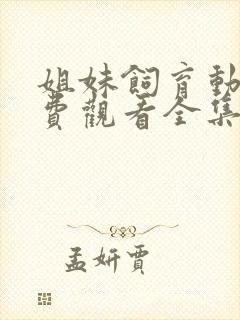 姐妹飼育動
費觀看全集
孟妍賈